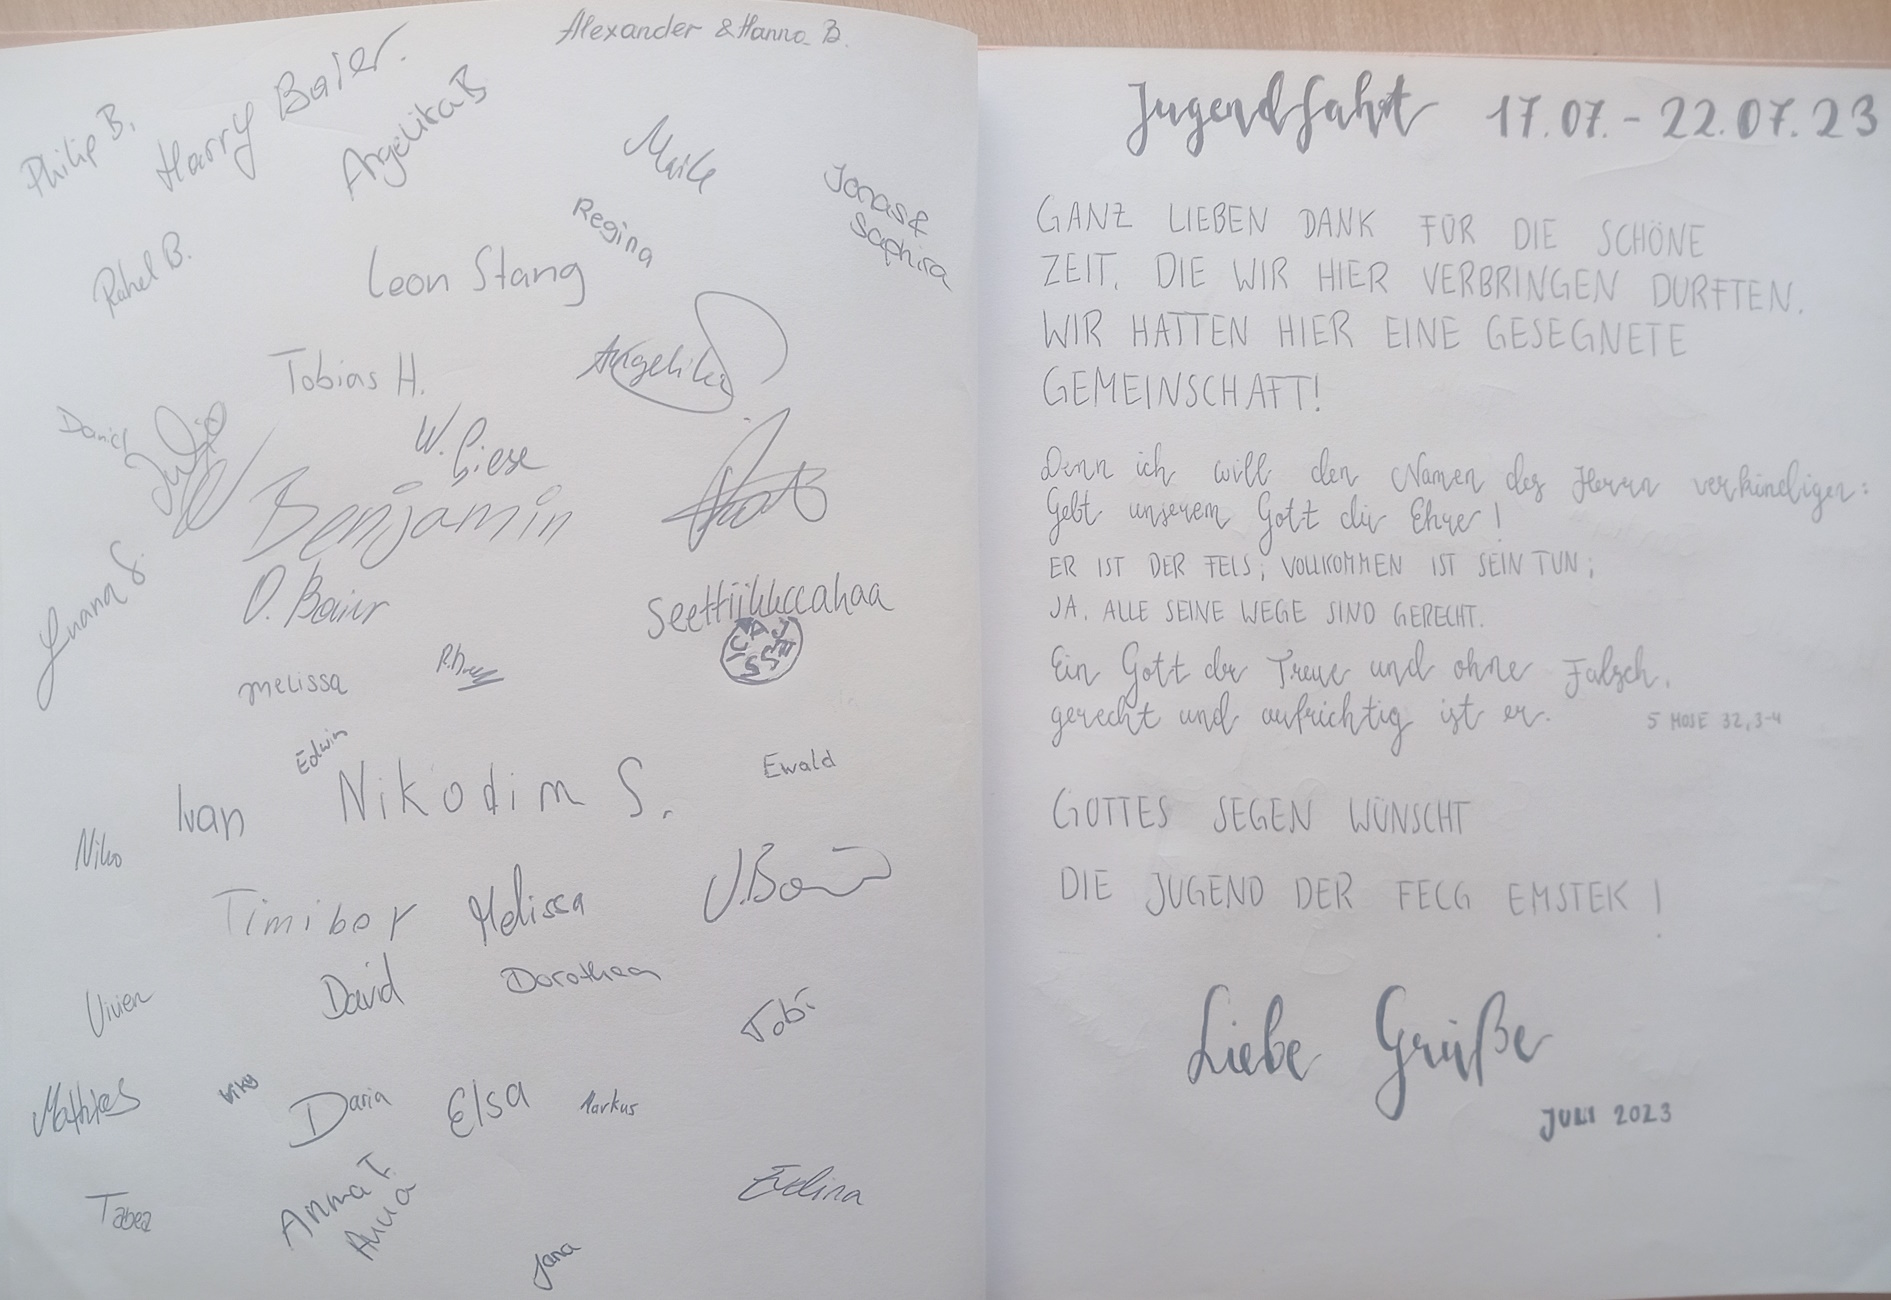 Alexander & Hanna B.
Philip B.
Harry Baier.
Angelika B
Maik
Jonas &
Saphira
Regina
Rahel B.
Leon Stang
Tobias H.
Angelika
Daniel
Julia
W. Giese
Benjamin
O. Baier
Luana S.
Seettiikkccahaa
melissa
Edwin
Ewald
Ivan
Nikodim S.
Niko
Timibor
Melissa
David
Dorothea
Vivien
Tobi
Mathias
Viky
Daria
Elsa
Markus
Anna T.
Anna
Tabea
Evelina
Jana
Jugendfahrt 17.07. - 22.07.23
GANZ LIEBEN DANK FÜR DIE SCHÖNE
ZEIT, DIE WIR HIER VERBRINGEN DURFTEN.
WIR HATTEN HIER EINE GESEGNETE
GEMEINSCHAFT!
Denn ich will den Namen des Herrn verkündigen:
Gebt unserem Gott die Ehre!
ER IST DER FELS; VOLLKOMMEN IST SEIN TUN;
JA, ALLE SEINE WEGE SIND GERECHT.
Ein Gott der Treue und ohne Falsch,
gerecht und aufrichtig ist er.
5 MOSE 32,3-4
GOTTES SEGEN WÜNSCHT
DIE JUGEND DER FECG EMSTEK!
Liebe Grüße
JULI 2023